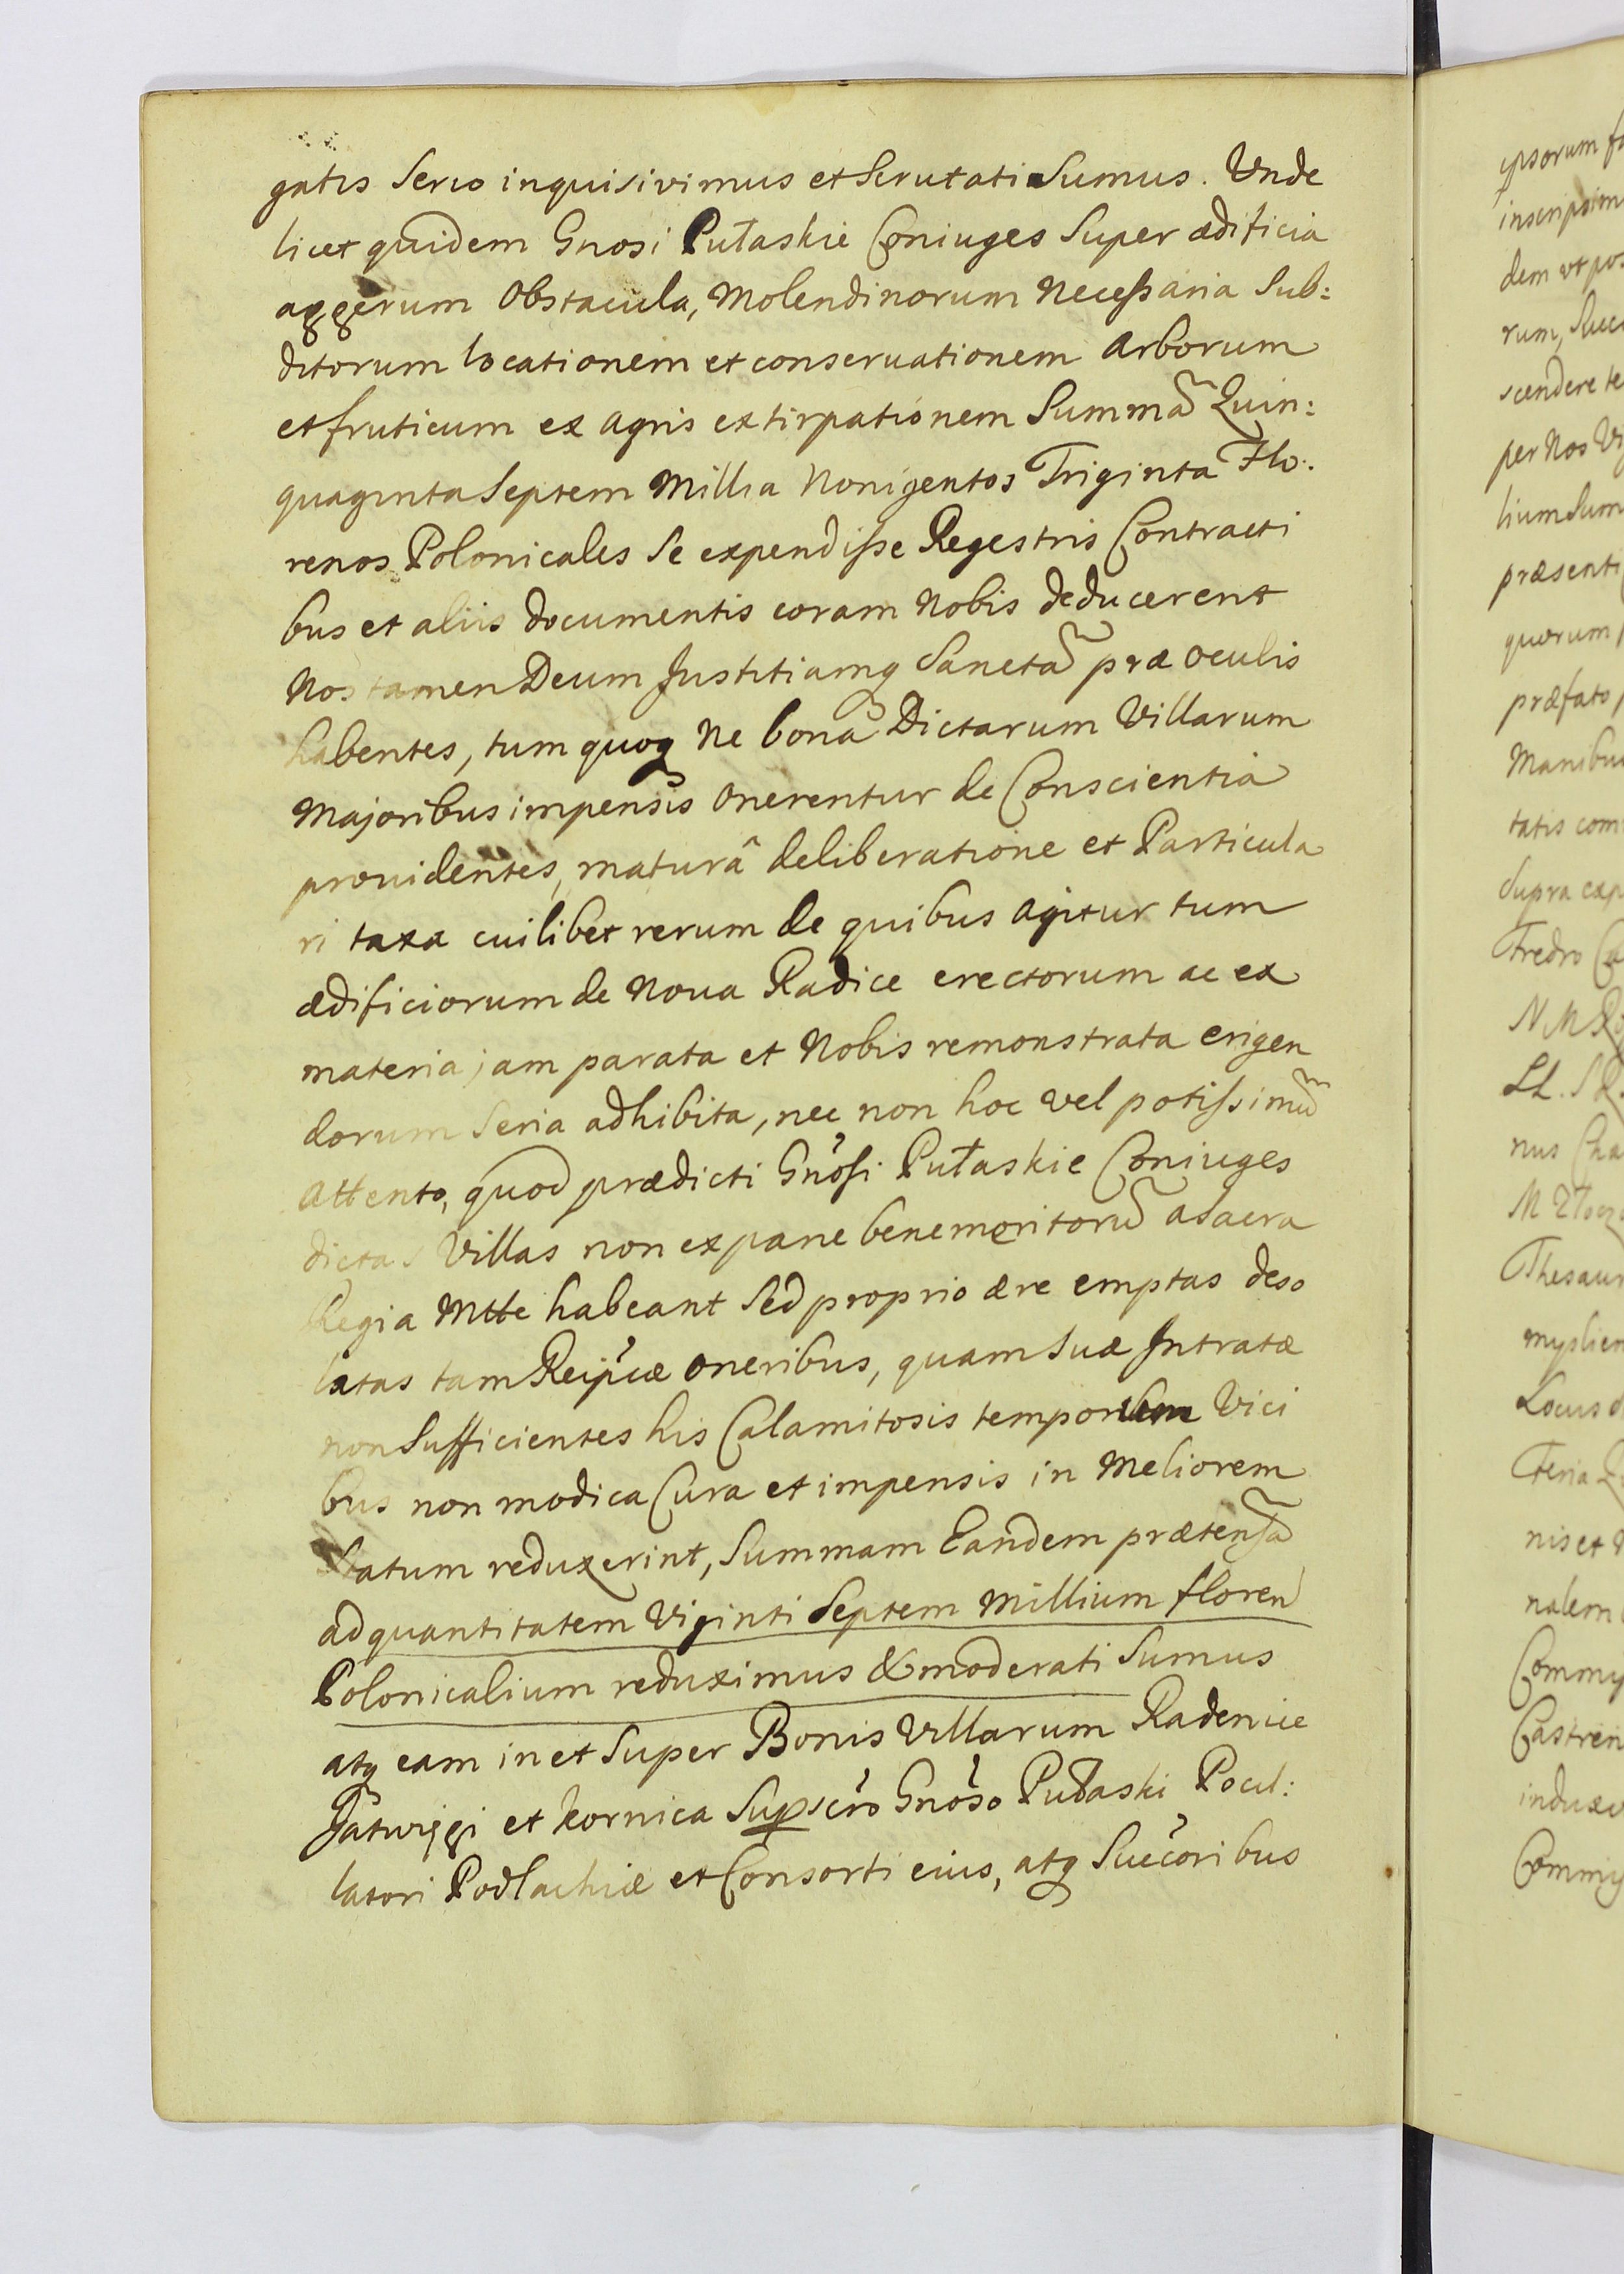 gatis Serio inquisivimus et Scrutati Sumus. Unde
licet quidem Gnosi Pułaskie Coniuges Super ædificia
aggerum Obstacula, Molendinorum Necessaria Sub:
ditorum locationem et conseruationem Arborum
et fruticum ex agris extirpationem Summã Quin:
quaginta Septem Millia Nonigentos Triginta Flo:
renos Polonicales Se expendisse Regestris Contracti
bus et aliis documentis coram Nobis deducerent
Nos tamen Deum Justitiamq Sanctã præ oculis
habentes, tum quoq Ne bona Dictarum Villarum
Majoribus impensis Onerentur de Conscientia
prouidentes, maturâ deliberatione et Particula
ri taxa cuilibet rerum de quibus agitur tum
ædificiorum de Noua Radice erectorum ac ex
materia jam parata et Nobis remonstrata erigen
dorum Seria adhibita, nec non hoc vel potissimũ
Attento, quod prædicti Gnosi Pułaskie Coniuges
dictas Villas non ex pane benemeritorũ a Sacra
Regia Mtte habeant Sed proprio ære emptas deso
latas tam Reipcæ Oneribus, quam Suæ Intratæ
non Sufficientes his Calamitosis temporum Vici
bus non modica Cura et impensis in Meliorem
Statum reduxerint, Summam Eandem prætensã
ad quantitatem Viginti Septem Millium floren
Polonicalium reduximus & moderati Sumus
atq eam in et Super Bonis Villarum Radenice
Jatwiggi et Kornica Suprscro Gnoso Pułaski Pocil:
latori Podlachiæ et Consorti eius, atq Succoribus